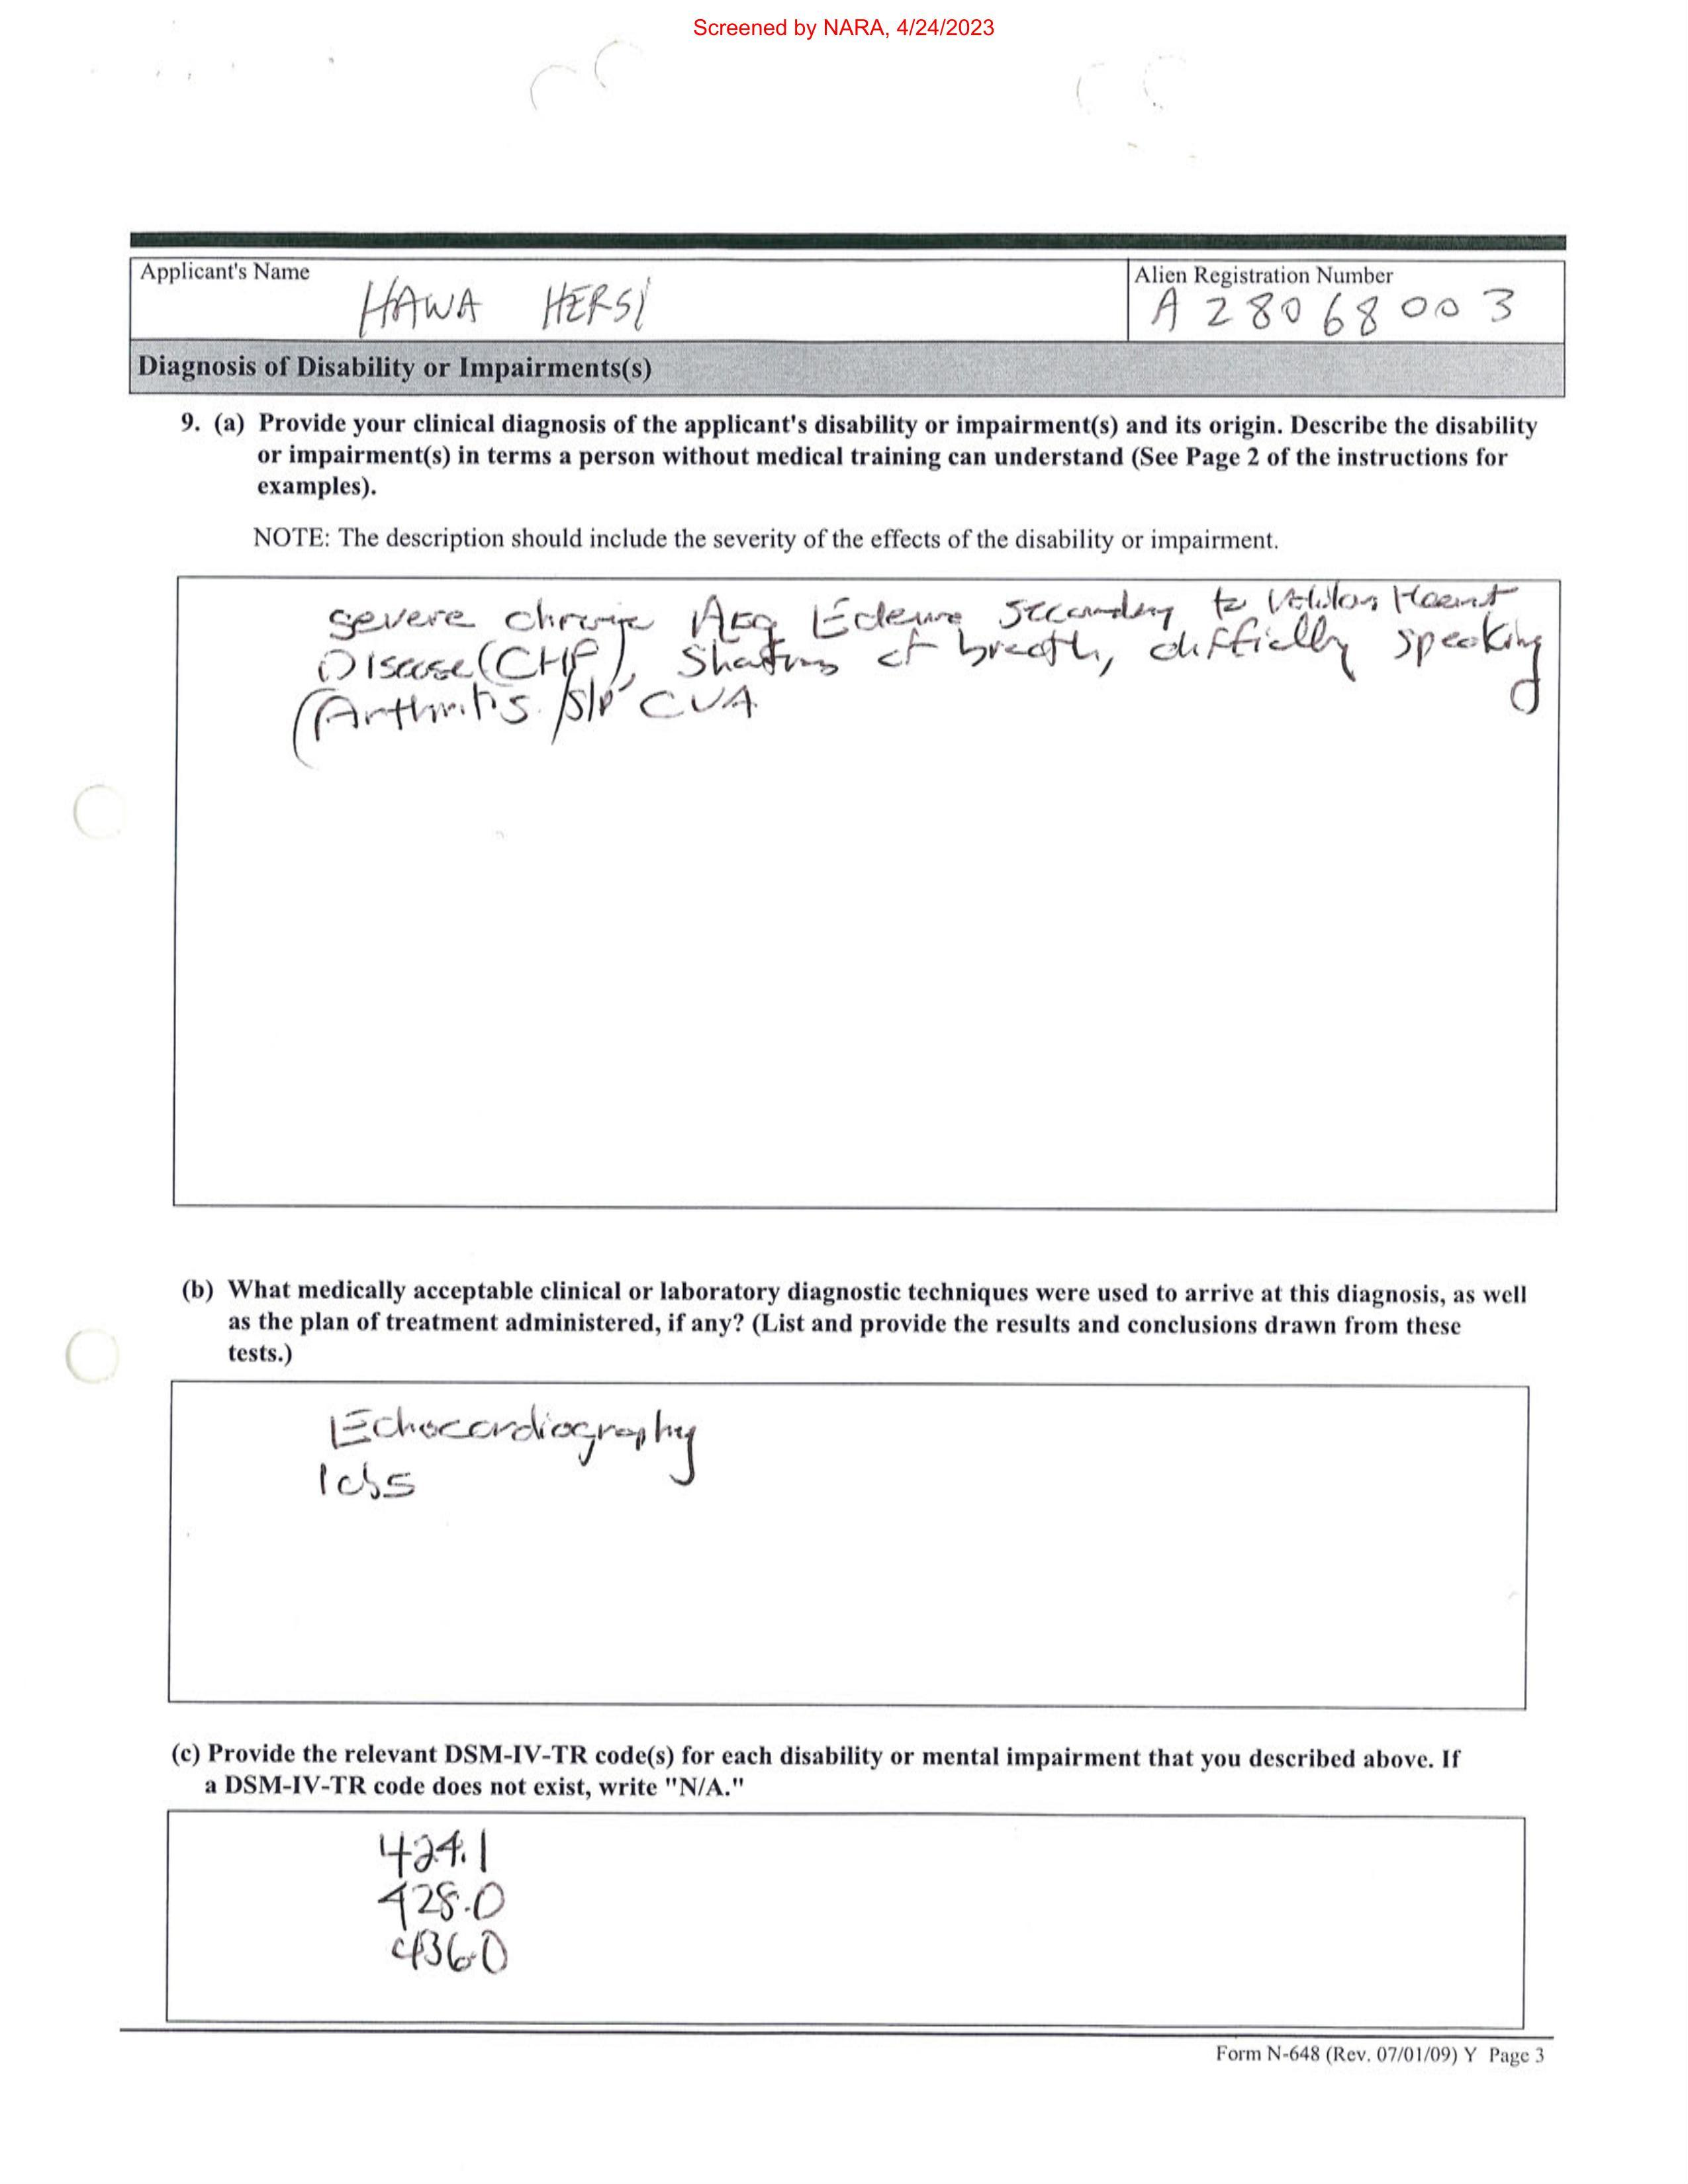 Screened by NARA, 4/24/2023
Applicant's Name
HAWA HERSI
Alien Registration Number
A 28068003
Diagnosis of Disability or Impairments(s)
9. (a) Provide your clinical diagnosis of the applicant's disability or impairment(s) and its origin. Describe the disability
or impairment(s) in terms a person without medical training can understand (See Page 2 of the instructions for
examples).
NOTE: The description should include the severity of the effects of the disability or impairment.
severe chronic Edema secondary to Heart
Disease (CHF), of breath, speaking
Arthritis. S/P CVA
(b) What medically acceptable clinical or laboratory diagnostic techniques were used to arrive at this diagnosis, as well
as the plan of treatment administered, if any? (List and provide the results and conclusions drawn from these
tests.)
Echocardiography
labs
(c) Provide the relevant DSM-IV-TR code(s) for each disability or mental impairment that you described above. If
a DSM-IV-TR code does not exist, write "N/A."
424.1
428.0
436.0
Form N-648 (Rev. 07/01/09) Y Page 3